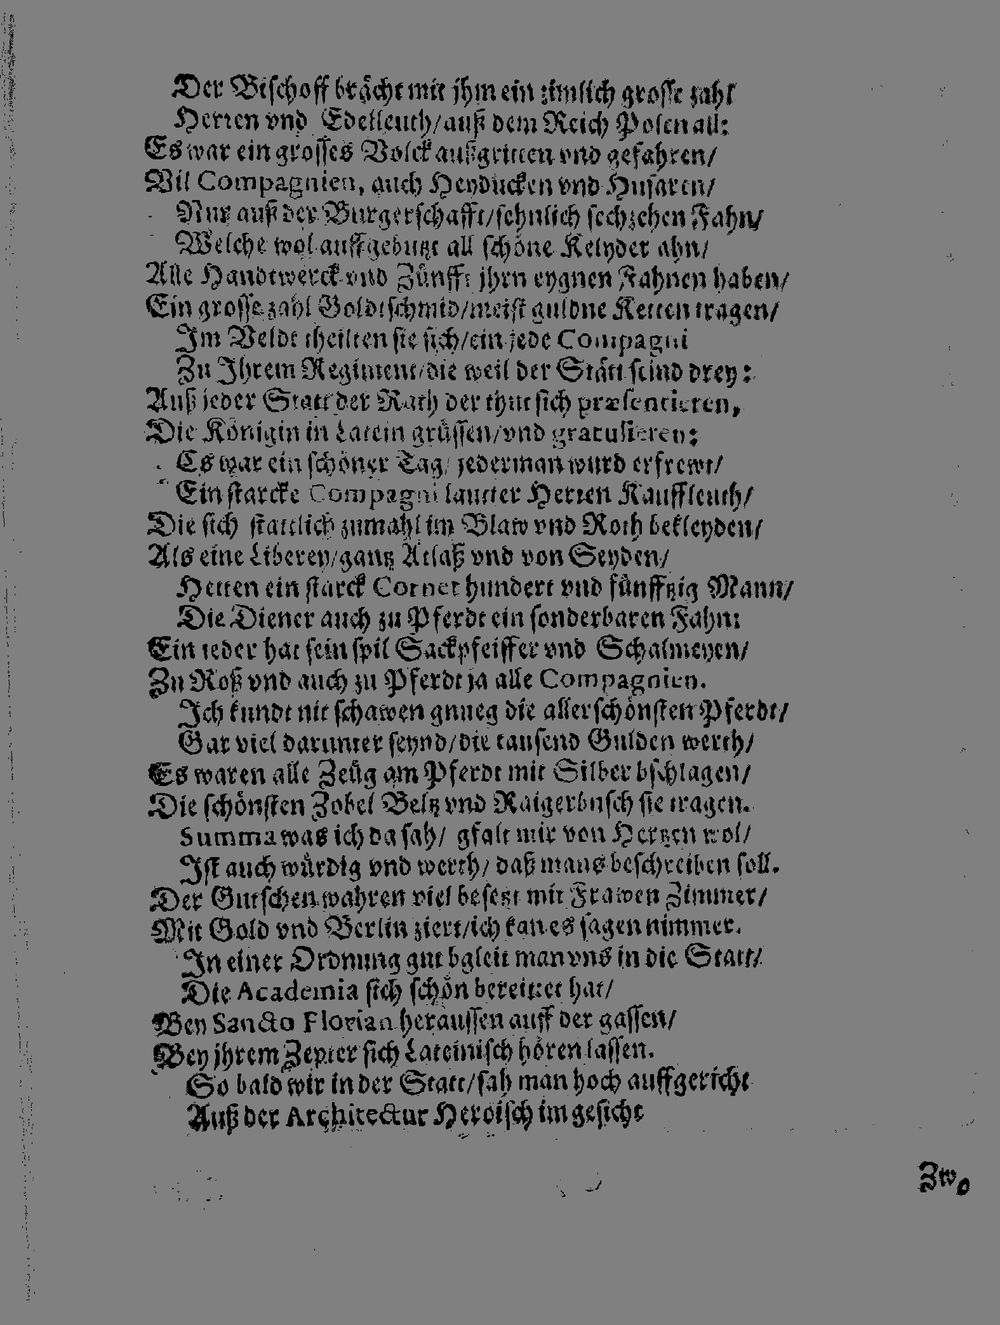 Der Bischoff brächt mit jhm ein zimlich grosse zahl
Herren vnd Edelleuth/ auß dem Reich Polen all:
Es war ein grosses Volck außgritten vnd gefahren/
Vil Compagnien, auch Heyducken vnd Husaren/
Nur auß der Burgerschafft/ sehnlich sechzehen Fahn/
Welche wol auffgebutzt all schöne Kelyder ahn/
Alle Handtwerck vnd Zünfft jhrn eygnen Fahnen haben/
Ein grosse zahl Goldtschmid/ meist guldne Ketten tragen/
Im Veldt theilten sie sich/ ein jede Compagni
Zu Ihrem Regiment/ die weil der Stätt seind drey:
Auß jeder Statt der Rath der thut sich præsentieren,
Die Königin in Latein grüssen/ vnd gratulieren:
Es war ein schöner Tag/ jederman wurd erfrewt/
Ein starcke Compagni lautter Herren Kauffleuth/
Die sich stattlich zumahl im Blaw vnd Roth bekleyden/
Als eine Liberey/ gantz Atlaß vnd von Seyden/
Hetten ein starck Cornet hundert vnd fünfftzig Mann/
Die Diener auch zu Pferdt ein sonderbaren Fahn:
Ein jeder hat sein spil Sackpfeiffer vnd Schalmeyen/
Zu Roß vnd auch zu Pferdt ja alle Compagnien.
Ich kundt nit schawen gnueg die allerschönsten Pferdt/
Gar viel darunter seynd/ die tausend Gulden werth/
Es waren alle Zeüg am Pferdt mit Silber bschlagen/
Die schönsten Zobel Beltz vnd Raigerbusch sie tragen.
Summa was ich da sah/ gfalt mir von Hertzen wol/
Ist auch würdig vnd werth/ daß mans beschreiben soll.
Der Gutschen wahren viel besetzt mit Frawen Zimmer/
Mit Gold vnd Berlin ziert/ ich kan es sagen nimmer.
In einer Ordnung gut bgleit man vns in die Statt/
Die Academia sich schön bereittet hat/
Bey Sancto Florian heraussen auff der gassen/
Bey jhrem Zepter sich Lateinisch hören lassen.
So bald wir in der Statt/ sah man hoch auffgericht
Auß der Architectur Heroisch im gesicht
Zwo